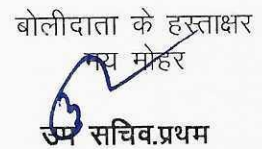 बोलीदाता के हस्ताक्षर
मय मोहर
उप सचिव.प्रथम